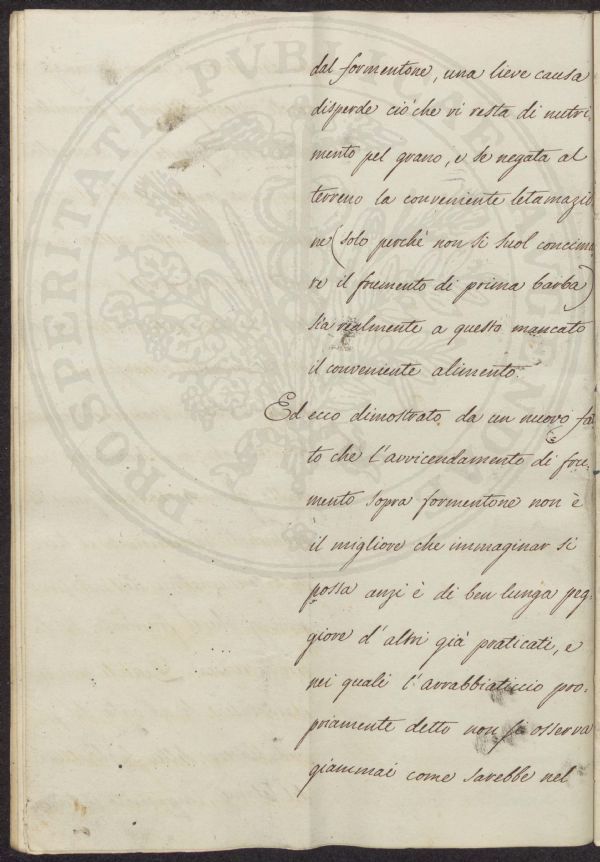 dal formentone, una lieve causa
disperde ciò che vi resta di nutri-
mento pel grano, e se negata al
terreno la conveniente letamazio
ne (solo perchè non si suol concima
re il frumento di prima barba)
sia realmente a questo mancato
il conveniente alimento.
Ed ecco dimostrato da un nuovo fa
to che l'avvicendamento di fru-
mento sopra formentone non è
il migliore che immaginar si
possa anzi è di ben lunga peg-
giore d'altri già praticati, e
nei quali l'arrabbiaticcio pro-
priamente detto non si osserva
giammai come sarebbe nel
PROSPERITATI PUBLICAE AUGENDAE